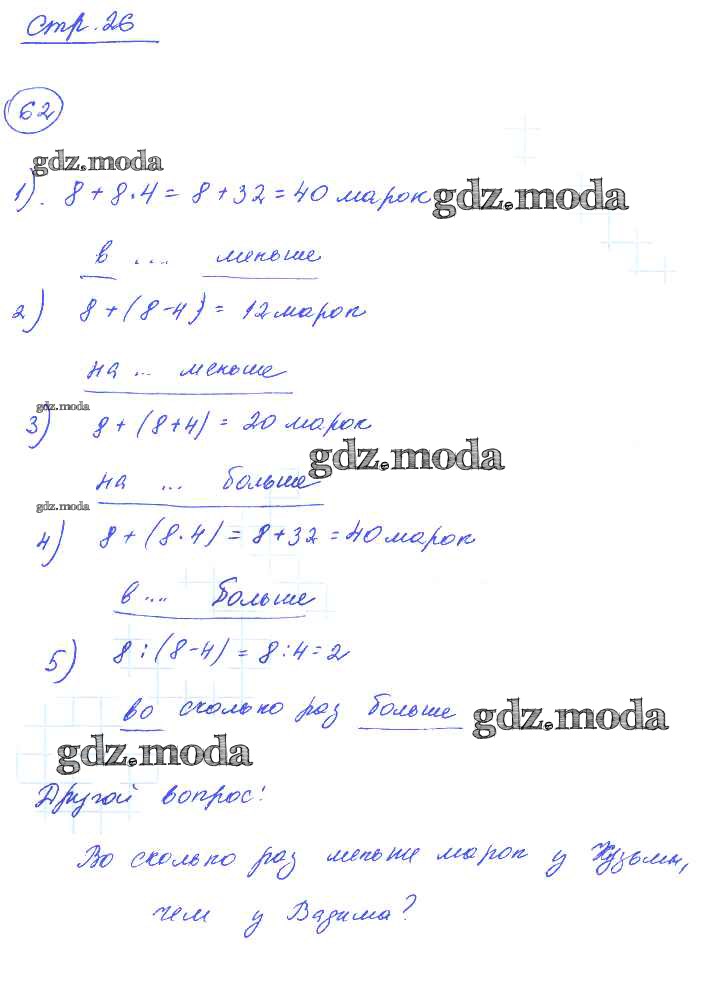 Стр. 26
62
gdz.moda
1). 8 + 8·4 = 8 + 32 = 40 марок gdz.moda
в ... меньше
2) 8 + (8-4) = 12 марок
на ... меньше
gdz.moda
3) 8 + (8+4) = 20 марок
gdz.moda
на ... больше
gdz.moda
4) 8 + (8·4) = 8 + 32 = 40 марок
в ... больше
5) 8 : (8-4) = 8:4=2
во сколько раз больше gdz.moda
gdz.moda
Другой вопрос:
Во сколько раз меньше марок у Кузьмы,
чем у Вадима?